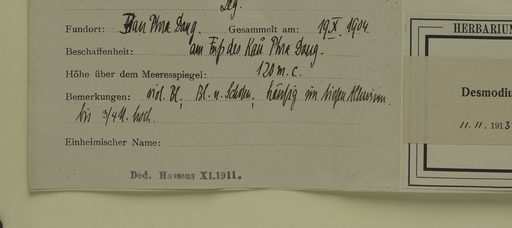 leg.
Fundort: Kau Phra Dang. Gesammelt am: 19.X.1904.
Beschaffenheit: am Fuß des Kau Phra Dang.
Höhe über dem Meeresspiegel: 120 m. c.
Bemerkungen: viol. Bl., Bl. u. Schoten, häufig im Alluvium
bis 3/4 M. hoch.
Einheimischer Name:
Ded. Hosseus XI.1911.
HERBARIUM
Desmodiu
11. 11. 1913